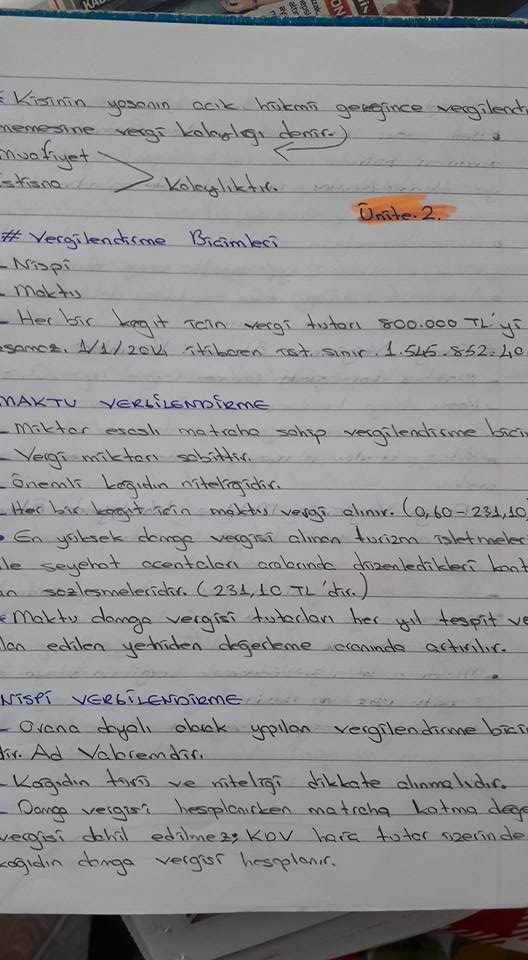 Kişinin yasanın açık hükmü gereğince vergilendi
memesine vergi kolaylığı denir.)
muafiyet
istisna > Kolaylıktır.
Ünite.2.
# Vergilendirme Biçimleri
- Nispi
- Maktu
- Her bir kağıt için vergi tutarı 800.000 TL'yi
aşamaz. 1/1/2014 itibaren üst sınır 1.545.852.40
MAKTU VERGİLENDİRME
- Miktar esaslı matraha sahip vergilendirme biçi
- Vergi miktarı sabittir.
- Önemli kağıdın niteliğidir.
- Her bir kağıt için maktu vergi alınır. (0,60-231,10)
• En yüksek damga vergisi alınan turizm işletmeler
ile seyehat acentaları aralarında düzenledikleri kont
an sözleşmeleridir. (231,10 TL'dir.)
Maktu damga vergisi tutarları her yıl tespit ve
lan edilen yetniden değerleme oranında artırılır.
NİSPİ VERGİLENDİRME
- Orana dayalı olarak yapılan vergilendirme biçi
dir. Ad Valoremdir.
- Kağıdın türü ve niteliği dikkate alınmalıdır.
- Damga vergisi hesplanırken matraha katma değe
vergisi dahil edilmez, KDV hariç tutar üzerinde
kağıdın damga vergisi hesplanır.